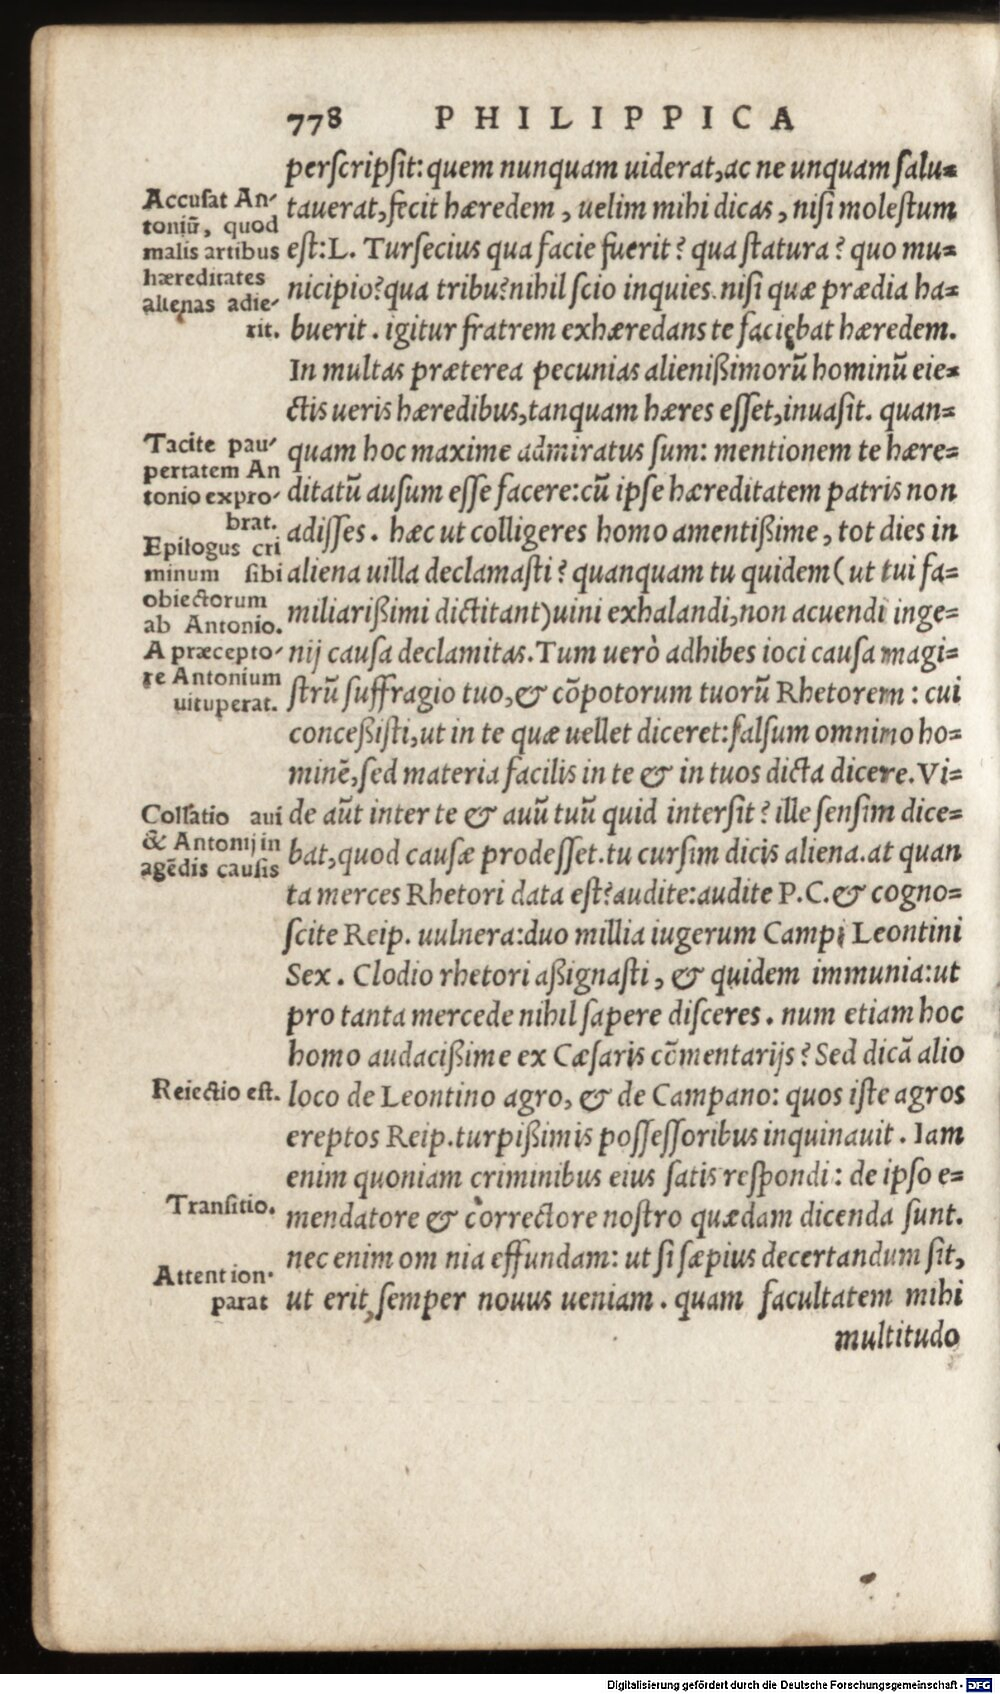 778 PHILIPPICA
perſcripſit: quem nunquam uiderat, ac ne unquam ſalu=
tauerat, fecit hæredem, uelim mihi dicas, niſi moleſtum
eſt: L. Turſecius qua facie fuerit? qua ſtatura? quo mu=
nicipio? qua tribu? nihil ſcio inquies. niſi quæ prædia ha=
buerit. igitur fratrem exhæredans te faciębat hæredem.
In multas præterea pecunias alienißimorũ hominũ eie=
ctis ueris hæredibus, tanquam hæres eſſet, inuaſit. quan=
quam hoc maxime admiratus ſum: mentionem te hære=
ditatũ auſum eſſe facere: cũ ipſe hæreditatem patris non
adiſſes. hæc ut colligeres homo amentißime, tot dies in
aliena uilla declamaſti? quanquam tu quidem (ut tui fa=
miliarißimi dictitant) uini exhalandi, non acuendi inge=
nij cauſa declamitas. Tum uerò adhibes ioci cauſa magi=
ſtrũ ſuffragio tuo, & cõpotorum tuorũ Rhetorem: cui
conceßiſti, ut in te quæ uellet diceret: falſum omnimo ho=
minẽ, ſed materia facilis in te & in tuos dicta dicere. Vi=
de aũt inter te & auũ tuũ quid interſit? ille ſenſim dice=
bat, quod cauſæ prodeſſet. tu curſim dicis aliena. at quan
ta merces Rhetori data eſt? audite: audite P.C. & cogno=
ſcite Reip. uulnera: duo millia iugerum Campi Leontini
Sex. Clodio rhetori aßignaſti, & quidem immunia: ut
pro tanta mercede nihil ſapere diſceres. num etiam hoc
homo audacißime ex Cæſaris cõmentarijs? Sed dicã alio
loco de Leontino agro, & de Campano: quos iſte agros
ereptos Reip. turpißimis poſſeſſoribus inquinauit. Iam
enim quoniam criminibus eius ſatis reſpondi: de ipſo e=
mendatore & correctore noſtro quædam dicenda ſunt.
nec enim om nia effundam: ut ſi ſæpius decertandum ſit,
ut erit, ſemper nouus ueniam. quam facultatem mihi
multitudo
Accuſat An-
toniũ, quod
malis artibus
hæreditates
alienas adie-
rit.
Tacite pau-
pertatem An
tonio expro-
brat.
Epilogus cri
minum ſibi
obiectorum
ab Antonio.
A præcepto-
re Antonium
uituperat.
Collatio aui
& Antonij in
agẽdis cauſis
Reiectio eſt.
Tranſitio.
Attention-
parat
Digitalisierung gefördert durch die Deutsche Forschungsgemeinschaft - DFG